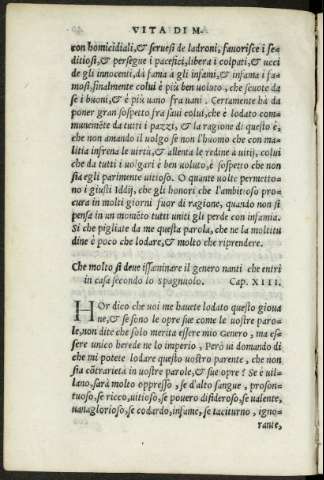 VITA DI M.
con homicidiali, & seruesi de ladroni, fauorisce i se-
ditiosi, & persegue i pacefici, libera i colpati, & ucci
de gli innocenti, da fama a gli infami, & infama i fa-
mosi, finalmente colui è piu ben uoluto, che scuote da
se i buoni, & è piu uano fra uani. Certamente hà da
poner gran sospetto fra saui colui, che è lodato com-
munemēte da tutti i pazzi, & la ragione di questo è,
che non amando il uolgo se non l'huomo che con ma-
litia infrena le uirtù, & allenta le redine a uitij, colui
che da tutti i uolgari è ben uoluto, è sospetto che non
sia egli parimente uitioso. O quante uolte permetto-
no i giusti Iddij, che gli honori che l'ambitioso pro-
cura in molti giorni fuor di ragione, quando non si
pensa in un momēto tutti uniti gli perde con infamia.
Si che pigliate da me questa parola, che ne la moltitu
dine è poco che lodare, & molto che riprendere.
Che molto si deue issaminare il genero nanti che entri
in casa secondo lo spagnuolo. Cap. XIII.
HOr dico che uoi me hauete lodato questo gioua
ne, & se sono le opre sue come le uostre paro-
le, non dite che solo merita essere mio Genero, ma es-
sere unico herede ne lo imperio, Però ui domando di
che mi potete lodare questo uostro parente, che non
sia cōtrarietà in uostre parole, & sue opre? Se è uil-
lano, sarà molto oppresso, se d'alto sangue, prosон-
tuoso, se ricco, uitioso, se pouero disideroso, se ualente,
uanaglorioso, se codardo, infame, se taciturno, igno-
rante,